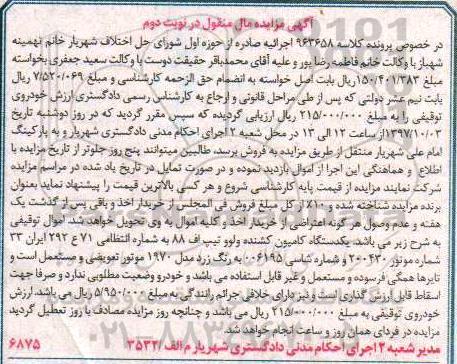 آگهی مزایده مال منقول در نوبت دوم
در خصوص پرونده کلاسه ۹۶۳۶۵۸ اجرائیه صادره از حوزه اول شورای حل اختلاف شهریار خانم تهمینه
شهباز با وکالت خانم فاطمه رضا پور و علیه آقای محمدباقر حقیقت دوست با وکالت سعید جعفری بخواسته
مبلغ ۱۵۰/۴۰۱/۳۸۳ریال بابت اصل خواسته به انضمام حق الزحمه کارشناسی و مبلغ ۷/۵۲۰/۰۶۹ ریال
بابت نیم عشر دولتی که پس از طی مراحل قانونی و ارجاع به کارشناس رسمی دادگستری ارزش خودروی
توقیفی را به مبلغ ۲۱۵/۰۰۰/۰۰۰ ریال ارزیابی گردیده که سپس مقرر گردید که در روز دوشنبه تاریخ
۱۳۹۷/۱۰/۰۳از ساعت ۱۲ الی ۱۳ در محل شعبه ۲ اجرای احکام مدنی دادگستری شهریار و به پارکینگ
امام علی شهریار منتقل از طریق مزایده به فروش برسد، طالبین میتوانند پنج روز جلوتر از تاریخ مزایده با
اطلاع و هماهنگی این اجرا از اموال بازدید نموده و در صورت تمایل در تاریخ یاد شده در مراسم مزایده
شرکت نمایند مزایده از قیمت پایه کارشناسی شروع و هر کسی بالاترین قیمت را پیشنهاد نماید بعنوان
برنده مزایده شناخته شده و ۱۰٪ از کل مبلغ فروش فی المجلس از خریدار اخذ و باقی پس از گذشت یک
هفته و عدم وصول هر گونه اعتراضی از خریدار اخذ و کلیه اموال به وی تحویل خواهد شد. اموال توقیفی
به شرح زیر می باشد. یکدستگاه کامیون کشنده ولوو تیپ اف ۸۸ به شماره انتظامی ۷۱ ع ۲۹۲ ایران ۳۳
شماره موتور ۲۰۰۴۳۰ و شماره شاسی ۰۰۶۱۹۵ به رنگ زرد مدل ۱۹۷۰ موتور تعویضی و مستعمل است و
تایرها همگی فرسوده و مستعمل و غیر قابل استفاده می باشد و خودرو وضعیت مطلوبی ندارد و صرفا جهت
اسقاط قابل ارزش گذاری است و نیز دارای خلافی جرائم رانندگی به مبلغ ۵/۹۵۰/۰۰۰ ریال می باشد. ارزش
خودروی توقیفی به مبلغ ۲۱۵/۰۰۰/۰۰۰ ریال می باشد و چنانچه روز مزایده مصادف با روز تعطیل گردید
مزایده در فردای همان روز و ساعت انجام خواهد شد.
مدیر شعبه ۲ اجرای احکام مدنی دادگستری شهریار م الف/۳۵۳۲ ۶۸۷۵